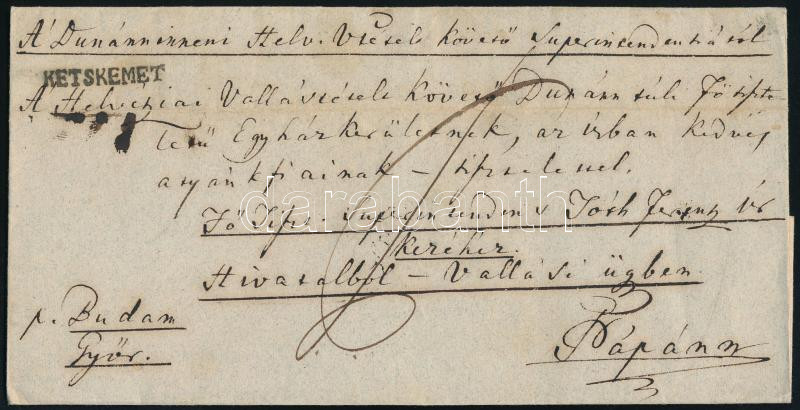 A' Dunánninneni Helv. Vtételt Követő Superintendentiától
KETSKEMET
A Helvétziai Vallástételt Követő Dunán túli Fő tiszte
letű Egyházkerületnek, az Úrban Kedves
atyánkfiainak – tisztelettel.
darabanth
Fő Tiszt. Superintendens Tóth Ferentz Úr
Kezéhez.
Hivatalból – Vallási ügyben
p. Budam
Győr.
Pápánn